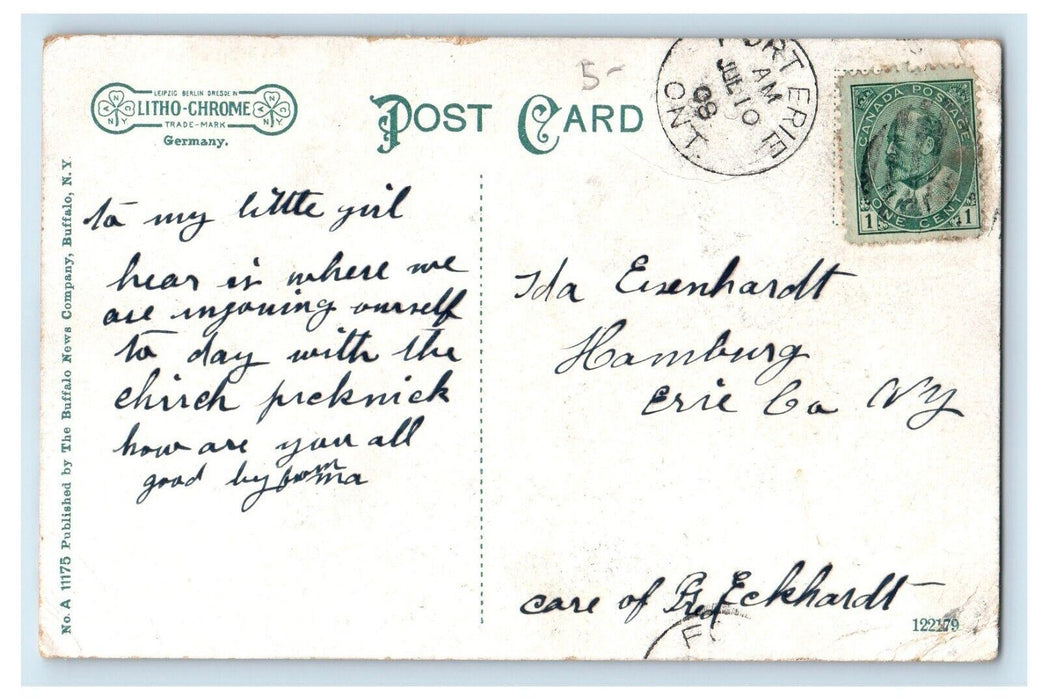 LEIPZIG BERLIN DRESDEN
LITHO-CHROME
TRADE-MARK
Germany.
POST CARD
5-
FORT ERIE
AM
JUL 10
08
ONT.
CANADA POSTAGE
ONE CENT
1 1
No. A 11175 Published by The Buffalo News Company, Buffalo, N. Y
to my little girl
hear is where we
are injouing ourself
to day with the
chirch picknick
how are you all
good by
Ida Eisenhardt
Hamburg
Erie Co NY
care of Fred Eckhardt
122179